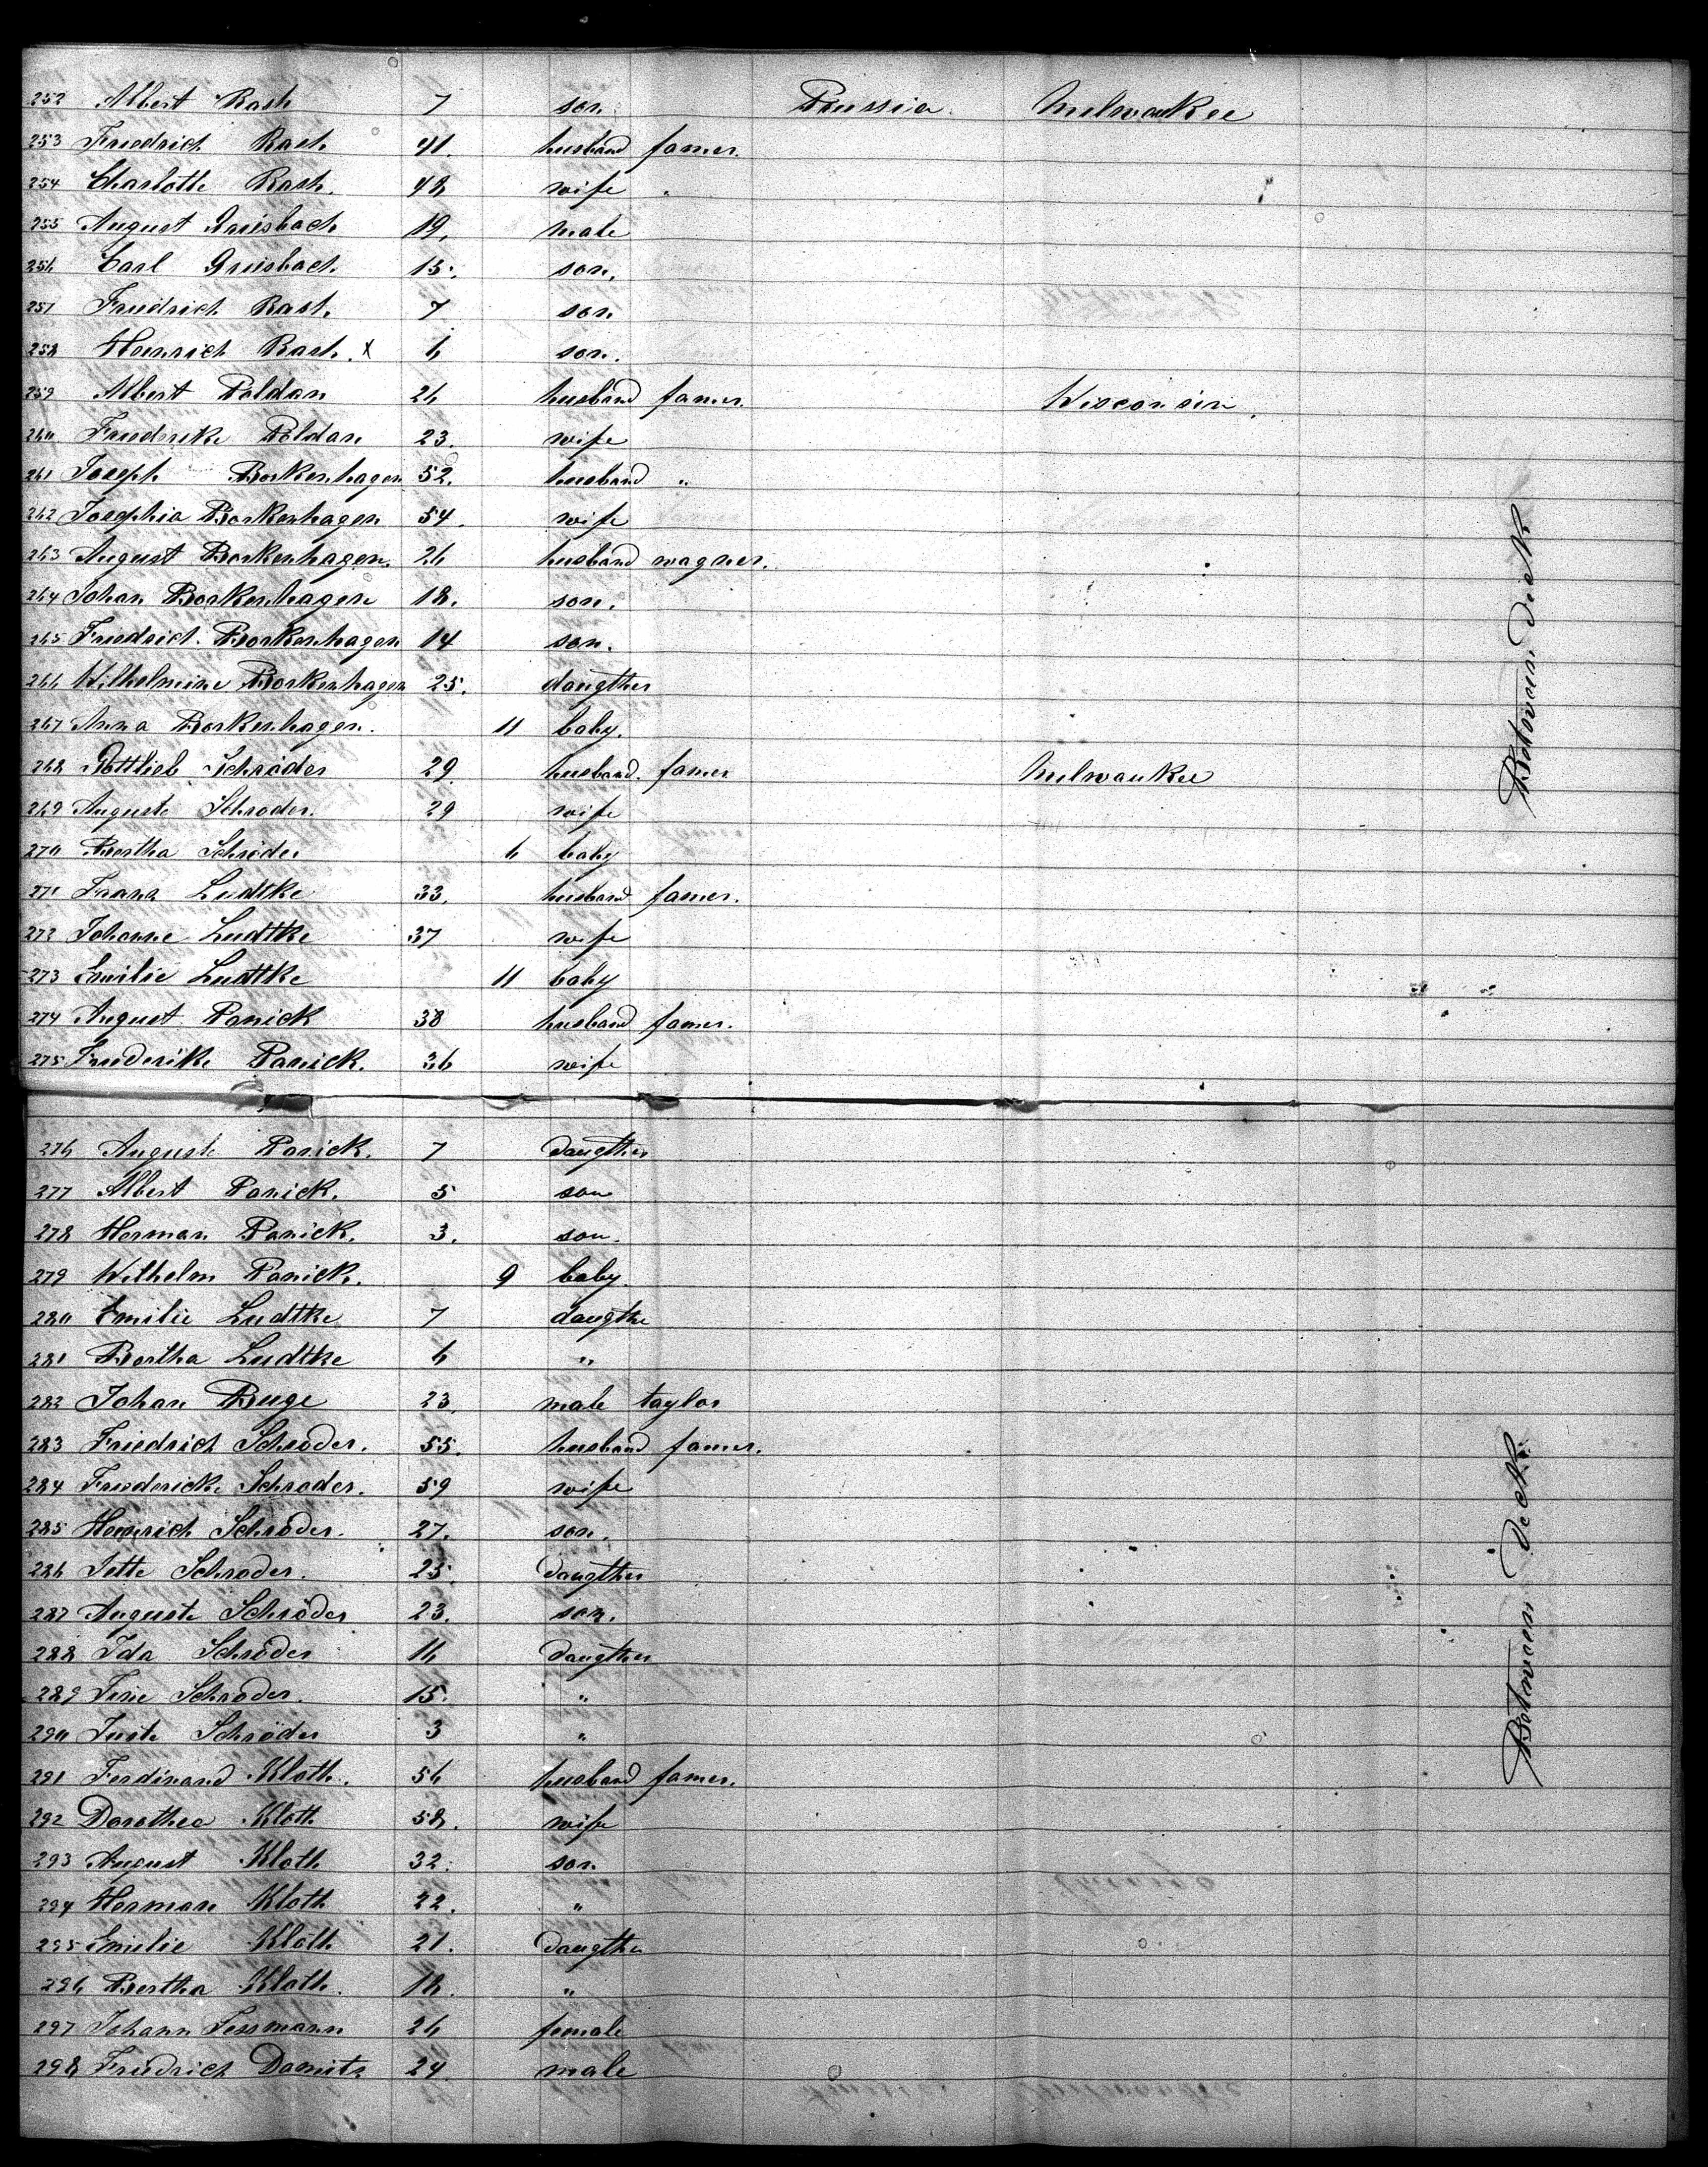 252 Albert Rash 7 son. Prussia. Milwaukee
253 Friedrich Rash 41. husband famer.
254 Charlotte Rash. 48 wife "
255 August Griesbach 19. male
256 Carl Griesbach. 15. son.
257 Friedrich Rash. 7 son
258 Heinrich Rash. x 6 son.
259 Albert Poldan 26 husband famer. Wisconsin.
260 Friederike Poldan 23. wife
261 Joseph Borkenhagen 52. husband "
262 Josephia Borkenhagen 54. wife
263 August Borkenhagen. 26 husband wagner.
264 Johan Borkenhagen 18. son.
265 Friedrich. Borkenhagen 14 son.
266 Wilhelmine Borkenhagen 25. daugther
267 Anna Borkenhagen. 11 baby.
268 Gottlieb Schröder 29. husband. famer Milwaukee
269 Auguste Schroder. 29 wife
270 Bertha Schröder 6 baby
271 Franz Ludtke 33. husband famer.
272 Johanne Ludtke 37 wife
273 Emilie Ludtke 11 baby
274 August Panick 38 husband famer.
275 Friederike Panick. 36 wife
Between Deck
276 Auguste Panick. 7 daugther
277 Albert Panick. 5 son
278 Herman Panick. 3. son.
279 Wilhelm Panick. 9 baby.
280 Emilie Ludtke 7 daugthe
281 Bertha Ludtke 6 "
282 Johan Buge 23. male taylor
283 Friedrich Schroder. 55. husband famer.
284 Friedericke Schroder. 59 wife
285 Heinrich Schroder. 27. son.
286 Jette Schroder. 25. daugther
287 Auguste Schröder 23. son.
288 Ida Schröder 16 daugther
289 Schroder. 15. "
290 Juste Schröder 3 "
291 Ferdinand Kloth. 56 husband famer.
292 Dorothea Kloth 58. wife
293 August Kloth 32. son.
294 Herman Kloth 22. "
295 Emilie Kloth 21. daugther
296 Bertha Kloth. 18. "
297 Johann Tessmann 26 female
298 Friedrich Damitz 24. male
Between Deck.